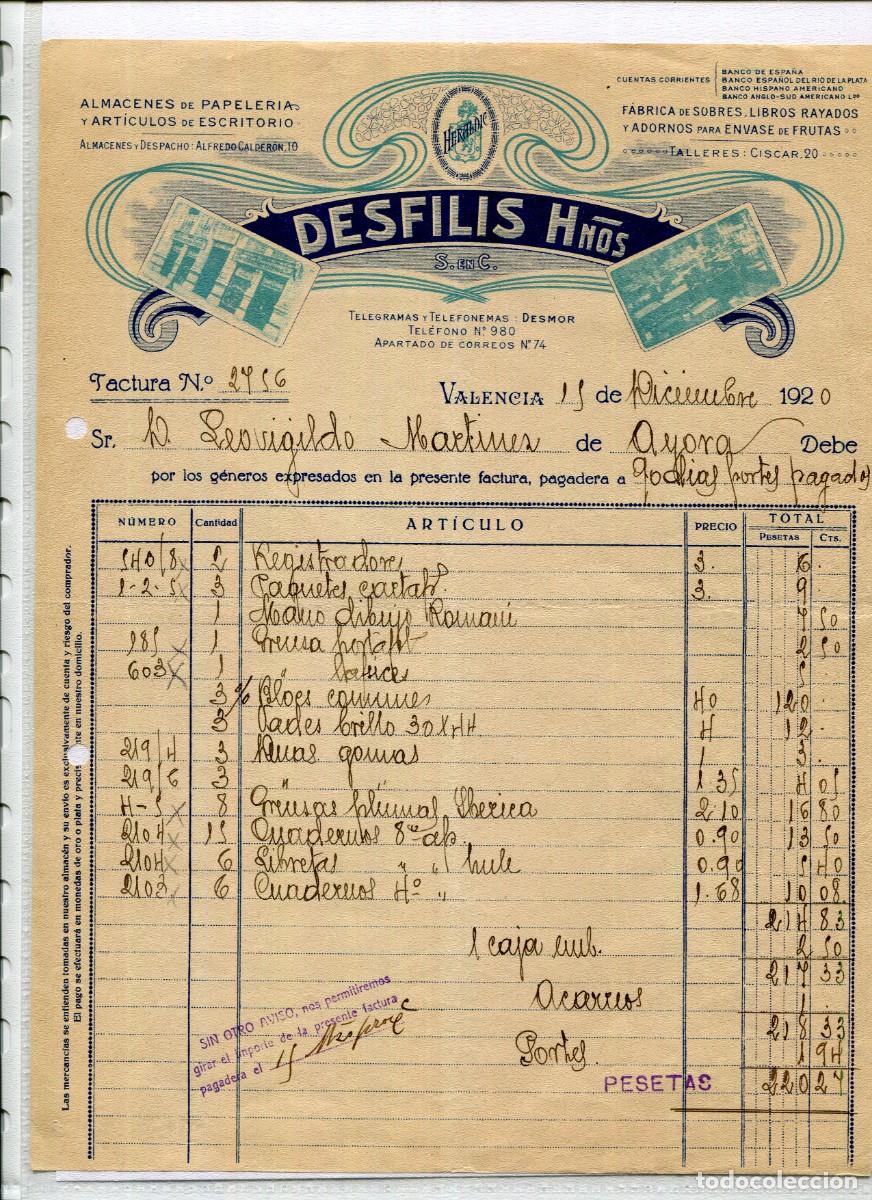 ALMACENES DE PAPELERIA
Y ARTÍCULOS DE ESCRITORIO
ALMACENES Y DESPACHO: ALFREDO CALDERÓN, 10
HERALDIC
CUENTAS CORRIENTES
BANCO DE ESPAÑA
BANCO ESPAÑOL DEL RIO DE LA PLATA
BANCO HISPANO AMERICANO
BANCO ANGLO-SUD AMERICANO LDO
FÁBRICA DE SOBRES, LIBROS RAYADOS
Y ADORNOS PARA ENVASE DE FRUTAS
TALLERES: CISCAR, 20
DESFILIS HNOS
S. EN C.
TELEGRAMAS Y TELEFONEMAS: DESMOR
TELÉFONO Nº 980
APARTADO DE CORREOS Nº 74
Factura N.º 2756 VALENCIA 15 de Diciembre 1920
Sr. D. Leovigildo Martinez de Ayora Debe
por los géneros expresados en la presente factura, pagadera a 90 dias portes pagados
NÚMERO Cantidad ARTÍCULO PRECIO TOTAL
PESETAS CTS.
540/8 2 Registradores 3. 6 .
1-2-5 3 Paquetes 3. 9 .
1 Mano dibujo Romani 7 50
185 1 Gruesa 2 50
603 1 " lapices 5 .
3 % Blocs comunes 40 120 .
3 brillo 30x44 4 12 .
219/4 3 gomas 1 3 .
219/6 3 " 1.35 4 05
4-5 8 Gruesas plumas Iberica 2.10 16 80
2104 15 Cuadernos 8º ap. 0.90 13 50
2104 6 Libretas " " hule 0.90 5 40
2103 6 Cuadernos 4º " 1.68 10 08
214 83
1 caja emb. 2 50
217 33
Acarreos 1 .
218 33
Portes 1 94
PESETAS 220 27
SIN OTRO AVISO, nos permitiremos
girar el importe de la presente factura
pagadera el 15
Las mercancías se entienden tomadas en nuestro almacén y su envío es exclusivamente de cuenta y riesgo del comprador.
El pago se efectuará en monedas de oro o plata y precisamente en nuestro domicilio.
todocoleccion